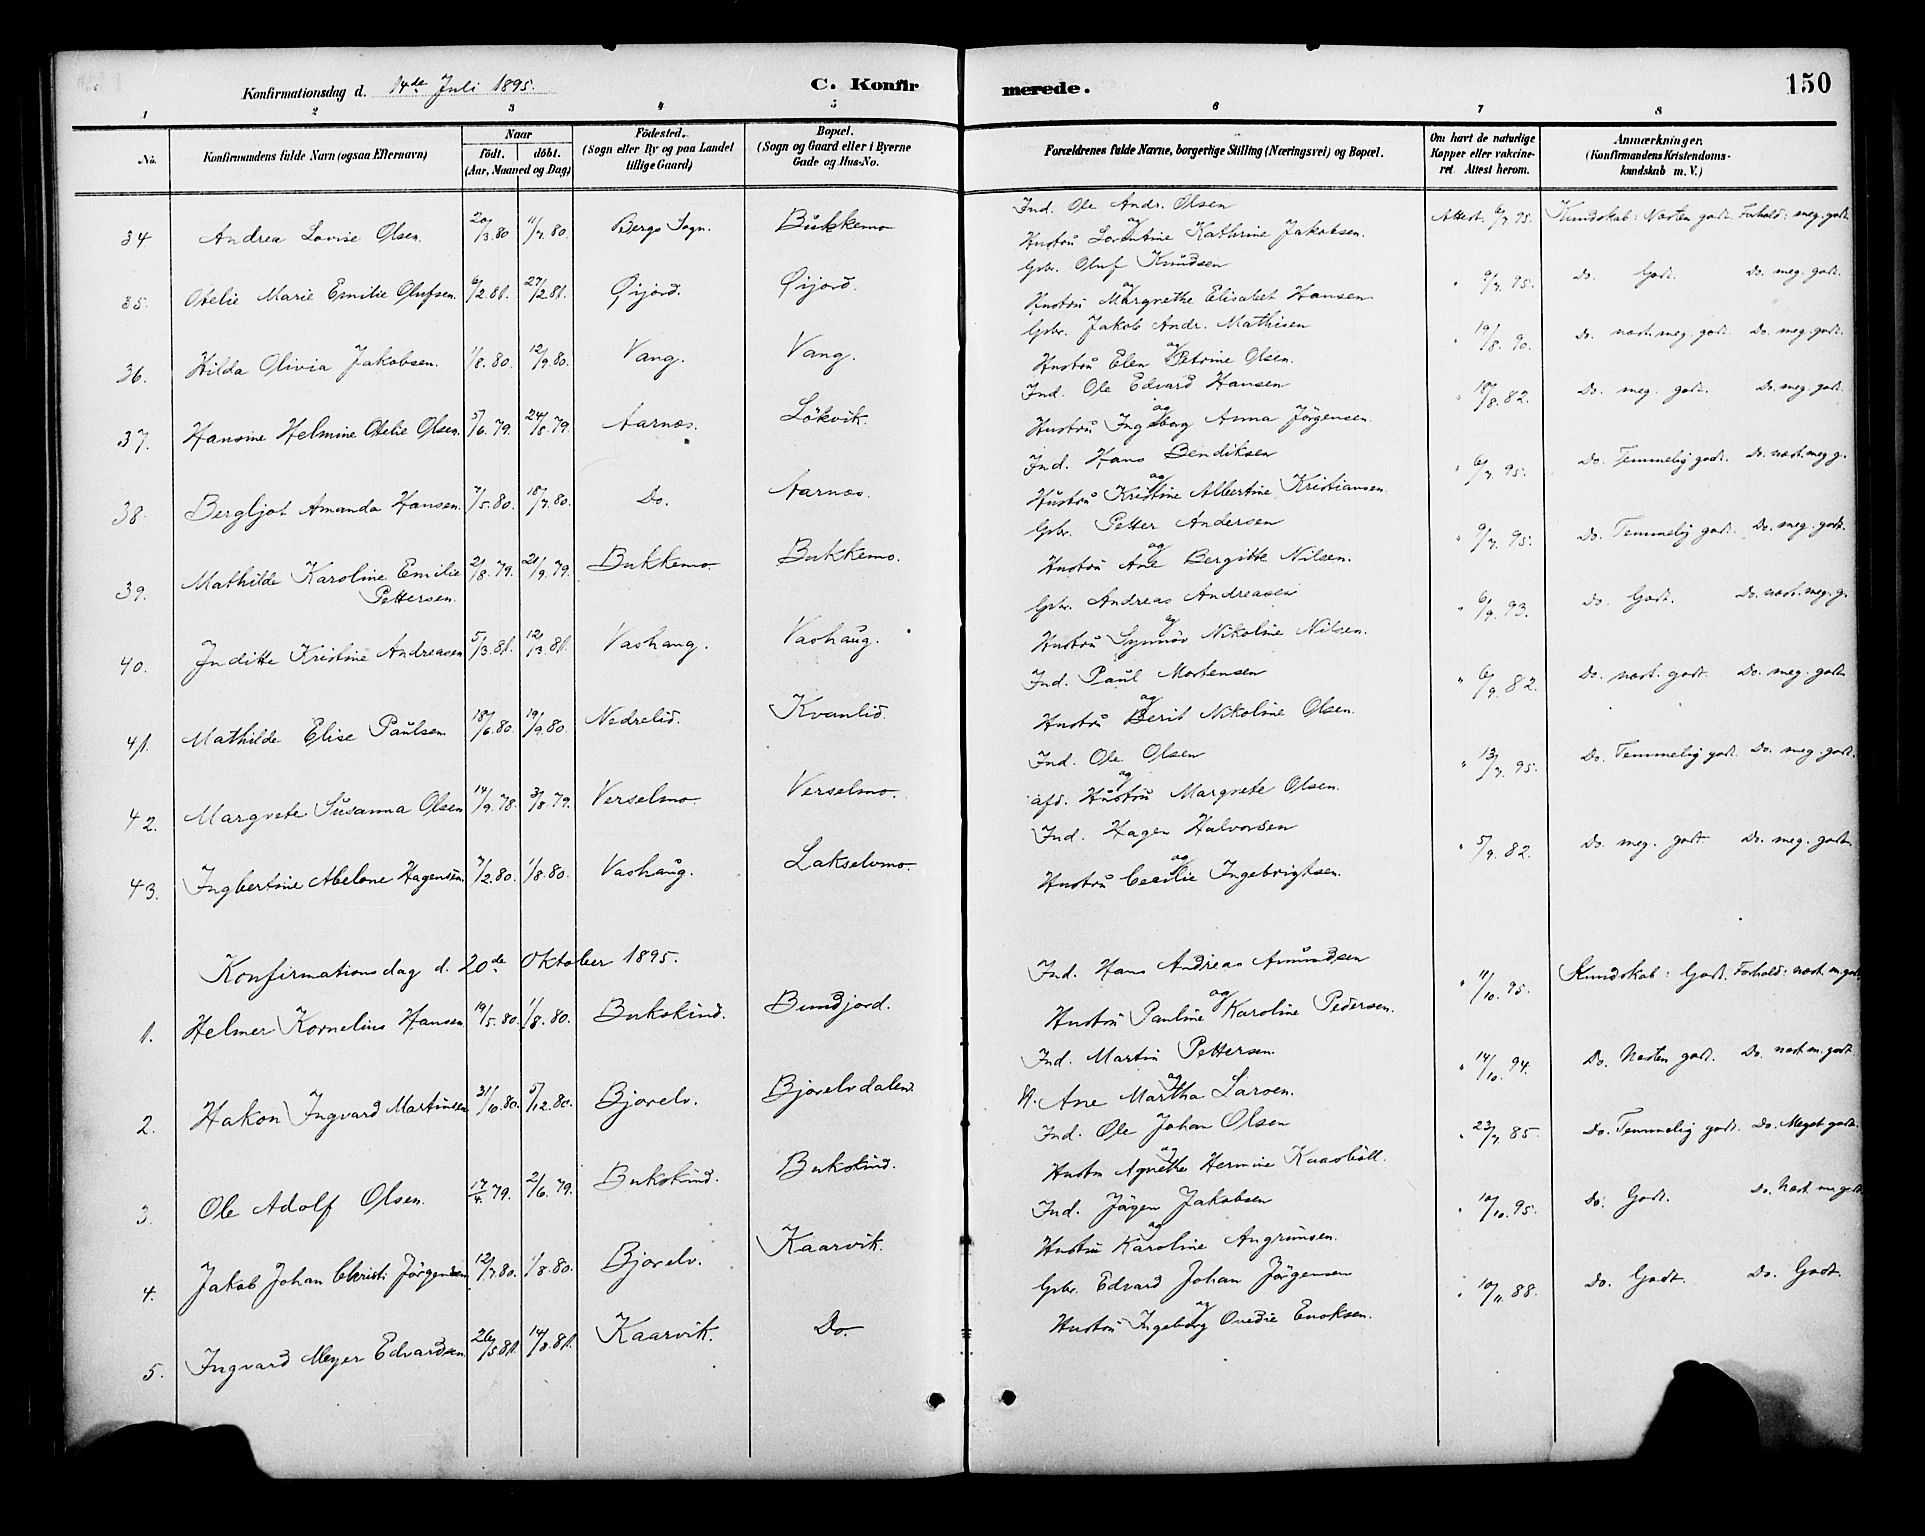 Konfirmationsdag d. 14de Juli 1895. C. Konfirmerede. 150
1 2 3 4 5 6 7 8
No. Konfirmandens fulde Navn (ogsaa Efternavn) Naar födt. döbt. (Aar, Maaned og Dag) Födested. (Sogn eller By og paa Landet tillige Gaard) Bopæl. (Sogn og Gaard eller i Byerne Gade og Hus-No. Forældrenes fulde Navne, borgerlige Stilling (Næringsvei) og Bopæl. Om havt de naturlige Kopper eller vakcineret Attest herom. Anmærkninger. (Konfirmandens Kristendomskundskab m. V.)
34 Andrea Lovise Olsen. 20/3.80 11/7.80. Bergs Sogn. Bukkemo Ind. Ole Andr. Olsen Attest 6/7 95. Kundskab: Næsten godt. Forhold: meg. godt.
og Hustru Lorentine Kathrine Jakobsen.
35. Otelie Marie Emilie Olufsen. 6/2.81. 27/2.81. Öijord. Öijord. Gbr. Oluf Knudsen " 9/7. 95. Do. Godt. Do. meg. godt.
og Hustru Margrethe Elisabet Hansen
36. Hilda Olivia Jakobsen. 1/8.80. 12/9.80. Vang. Vang. Gbr. Jakob Andr. Mathisen " 19/8. 90. Do. næst. meg. godt. Do. meg. godt.
og Hustru Elen Petrine Olsen.
37. Hansine Helmine Otelie Olsen. 5/6.79. 24/8.79. Aarnæs. Lökvik. Ind. Ole Edvard Hansen " 18/8.82. Do. meg. godt. Do. meg. godt.
og Hustru Ingeborg Anna Jörgensen.
38. Bergljot Amanda Hansen. 7/5.80. 18/7.80. Do. Aarnæs. Ind. Hans Bendiksen " 6/7. 95. Do. Temmelig godt. Do. næst. meg g.
og Hustru Kristine Albertine Kristiansen.
39. Mathilde Karoline Emilie Pettersen. 2/8.79. 21/9.79. Bukkemo. Bukkemo. Gbr. Petter Andersen " 9/7. 95. Do. Temmelig godt. Do. meg. godt.
og Hustru Ane Bergitte Nilsen.
40. Juditte Kristine Andreasen 5/3.81. 12/13.81. Vashaug. Vashaug. Gbr. Andreas Andreasen " 6/9. 93. Do. Godt. Do. næst. meg. g.
og Hustru Synnöv Nikoline Nilsen.
41. Mathilde Elise Paulsen 18/6.80. 19/9.80. Nedrelid. Kvanlid. Ind. Paul Mortensen " 6/9. 82. Do. næst. godt. Do. meg. godt.
og Hustru Berit Nikoline Olsen.
42. Margrete Susanna Olsen 14/9.78. 3/8.79. Verselmo. Verselmo. Ind. Ole Olsen " 13/7. 95. Do. Temmelig godt. Do. meg. godt.
og afd. Hustru Margrete Olsen.
43. Ingbertine Abelone Hagensen. 7/2.80. 1/8.80. Vashaug. Lakselvmo. Ind. Hagen Halvorsen " 5/9. 82. Do. meg. godt. Do. meg. godt.
og Hustru Cecilie Ingebrigtsen.
Konfirmationsdag d. 20de Oktober 1895.
1. Helmer Kornelius Hansen 19/5.80. 1/8.80. Bukskind. Bundjord. Ind. Hans Andreas Amundsen " 11/10. 95. Kundskab: Godt. Forhold: næst. m. godt.
og Hustru Pauline Karoline Pedersen.
2. Hakon Ingvard Martinsen 31/10.80. 5/12.80. Bjorelv. Bjorelvdalen. Ind. Martin Pettersen. " 14/10. 94. Do. Næsten godt. Do. næst m. godt
og H. Ane Martha Larsen.
3. Ole Adolf Olsen. 17/4.79. 2/6.79. Bukskind. Bukskind. Ind. Ole Johan Olsen " 23/7. 85. Do. Temmelig godt. Do. Meget godt.
og Hustru Agnethe Hermine Kaasböll.
4. Jakob Johan Christi Jörgensen 12/7.80. 1/8.80. Bjorelv. Kaarvik. Ind. Jörgen Jakobsen " 10/10. 95. Do. Godt. Do. Næst m. godt
og Hustru Karoline Angrimsen.
5. Ingvard Meyer Edvardsen 26/5.81. 14/8.81. Kaarvik. Do. Gbr. Edvard Johan Jörgensen " 10/11. 88. Do. Godt. Do. Godt.
og Hustru Ingeborg Ovedie Enoksen.